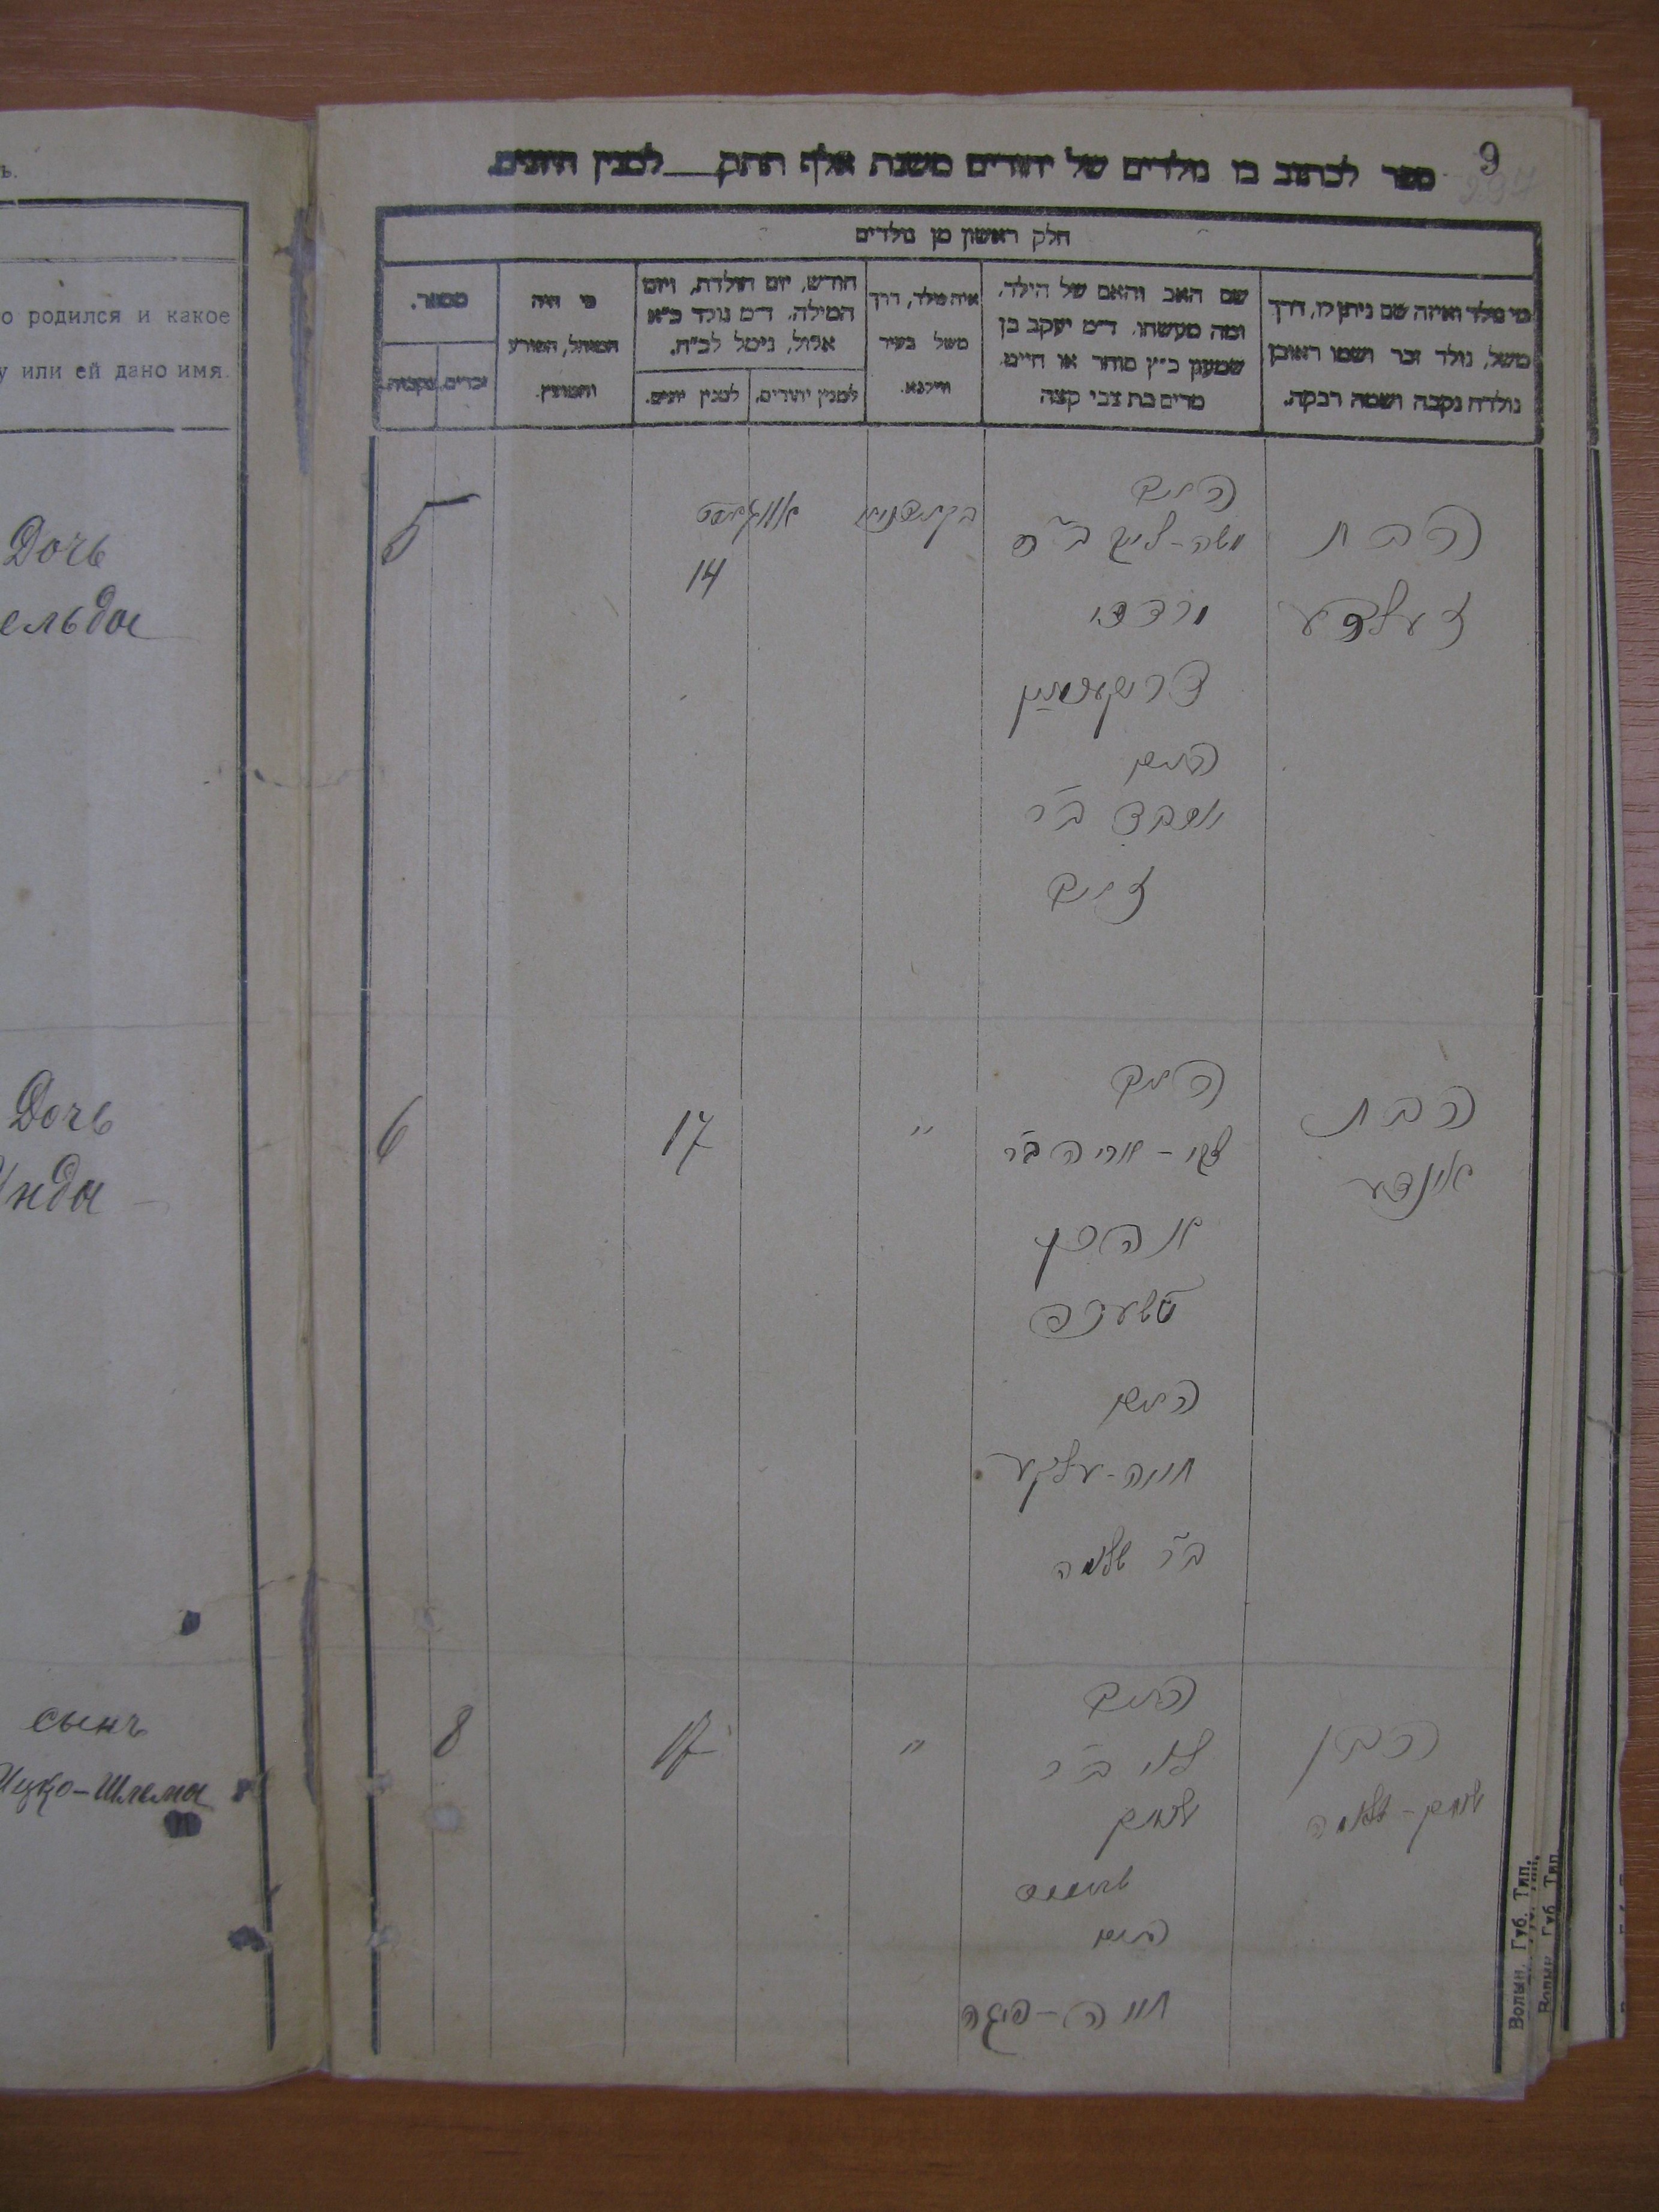 ъ.
о родился и какое
у или ей дано имя.
Дочь
ельда
Дочь
Инда
сынъ
Ицко-Шлема
9
ספר לכתוב בו נולדים של יהודים משנת אלף תתק למנין היונים.
חלק ראשון מן נולדים
מי נולד ואיזה שם ניתן לו, דרך
משל, נולד זכר ושמו ראובן
נולדה נקבה ושמה רבקה.
שם האב והאם של הילד,
ומה מעשהו. ד״מ יעקב בן
שמעון כ״ץ סוחר או חייט
מרים בת צבי קצה
איה נולד, דרך
משל בעיר
ווילנא.
חודש, יום הולדת, ויום
המילה. ד״מ נולד כ״א
אלול, נימל לכ״ח.
למנין יהודים.
למנין יונים.
מי היה
המוהל, הפורע
והמוצץ.
מספר.
זכרים.
נקבות.
הבת
זעלדע
האב
משה-לייב ב״ר
אוגוסט
14
5
האם
ב״ר
זאב
הבת
אינדע
האב
צבי-אריה ב״ר
אהרן
"
17
6
האם
חוה-עלקע
ב״ר שלמה
הבן
יצחק-שלמה
האב
לוי ב״ר
יצחק
האם
חוה-פיגה
"
17
8
Волын. Губ. Тип.
Волын. Губ. Тип.